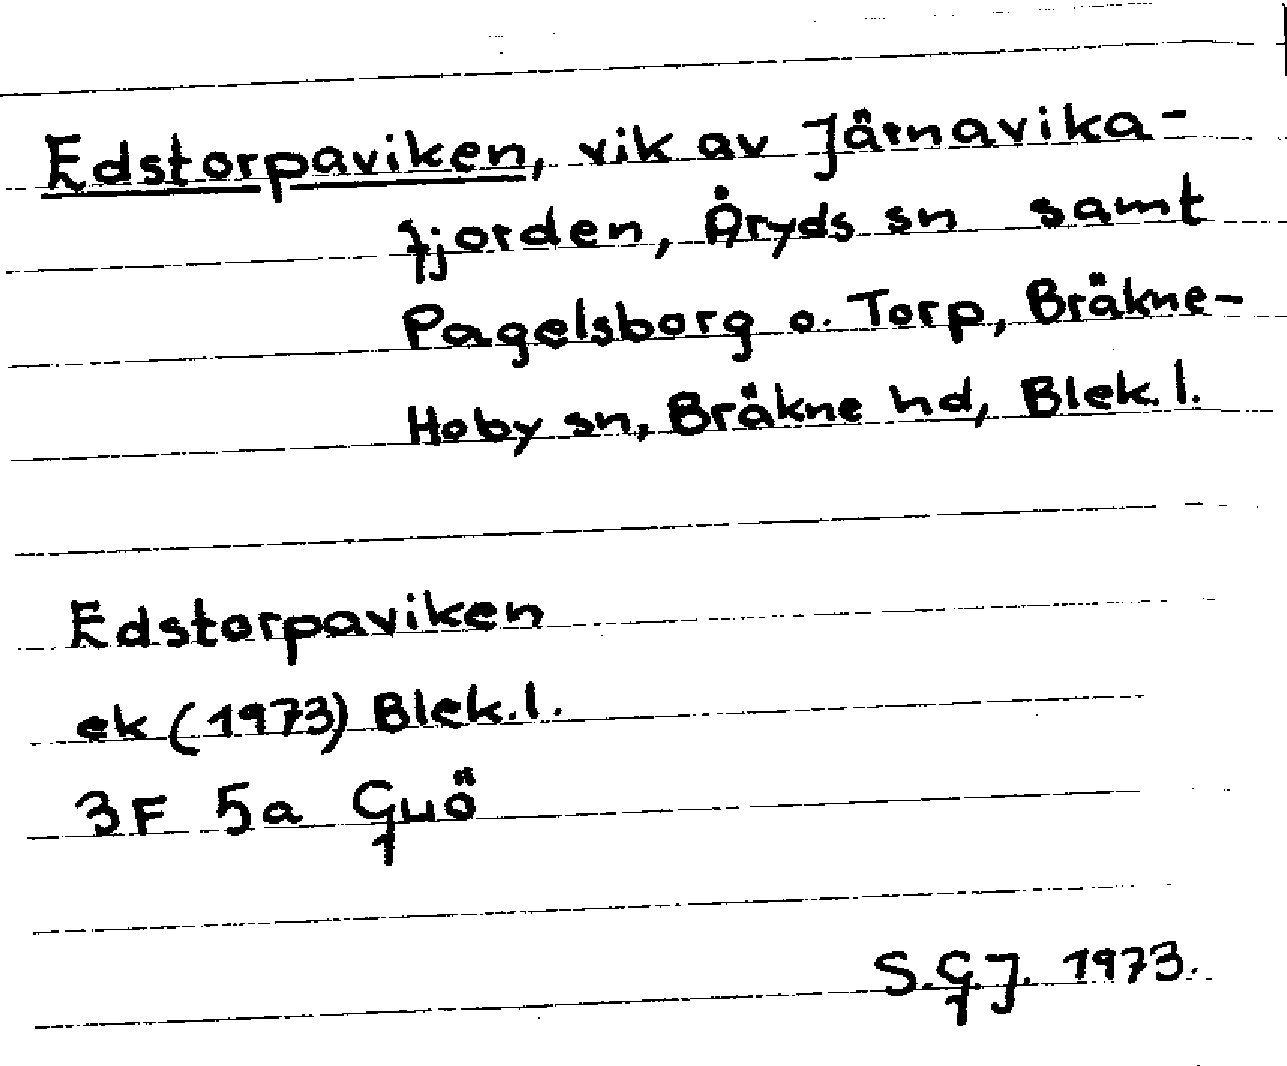 Edstorpaviken, vik av Järnavika-
fjorden, Åryds sn samt
Pagelsborg o. Torp, Bräkne-
Hoby sn, Bräkne hd, Blek. l.
Edstorpaviken
ek (1973) Blek. l.
3F 5a Guö
S.G.J. 1973.